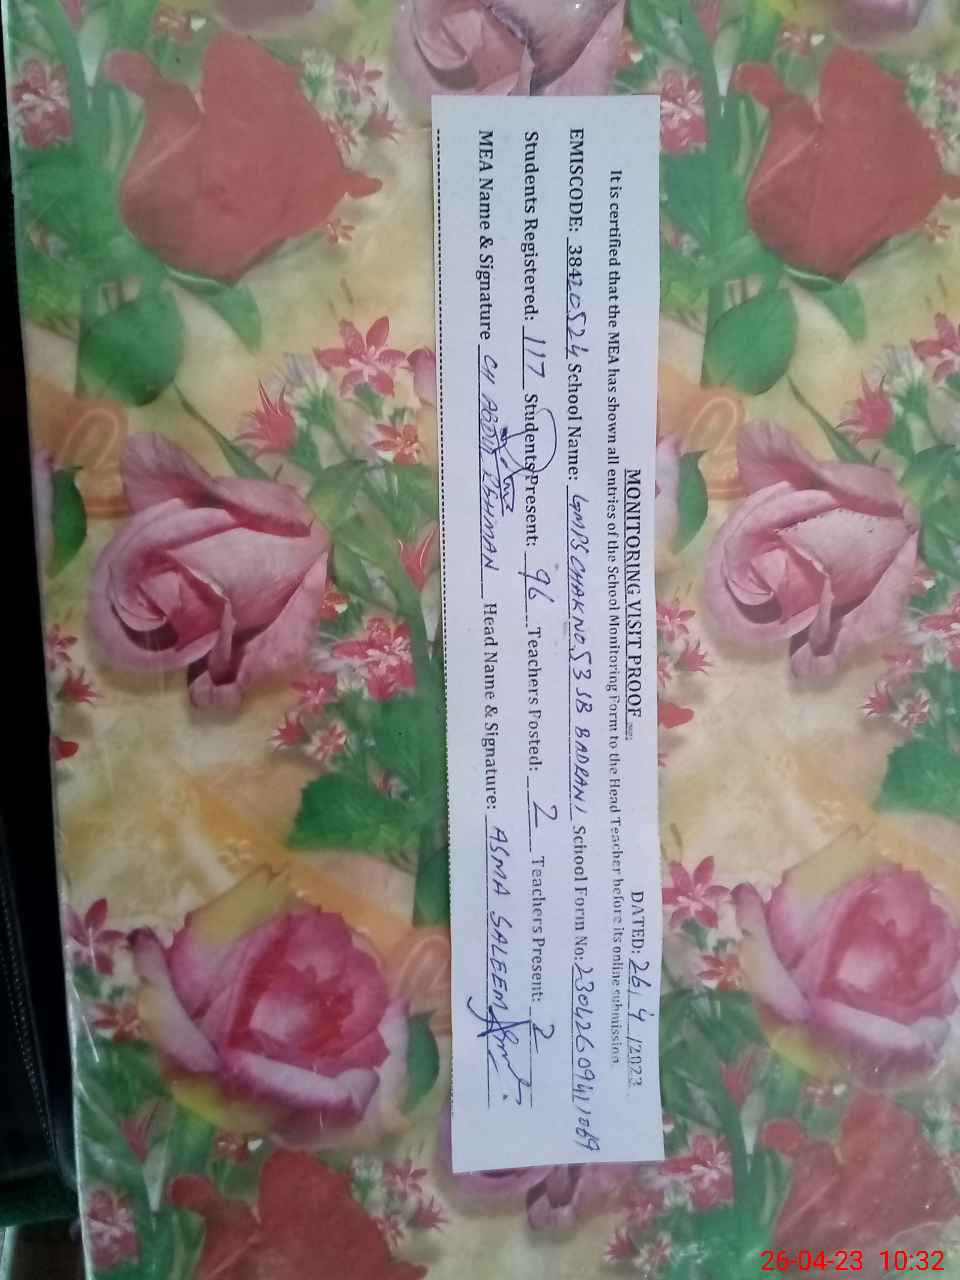 MONITORING VISIT PROOF DATED: 26/4/2023
It is certified that the MEA has shown all entries of the School Monitoring Form to the Head Teacher before its online submission.
EMISCODE: 38420524 School Name: GMPS CHAK NO.53 SB BADRANI School Form No: 23042609411069
Students Registered: 117 Students Present: 96 Teachers Posted: 2 Teachers Present: 2
MEA Name & Signature CH ABDUL REHMAN Head Name & Signature: ASMA SALEEM
26-04-23 10:32